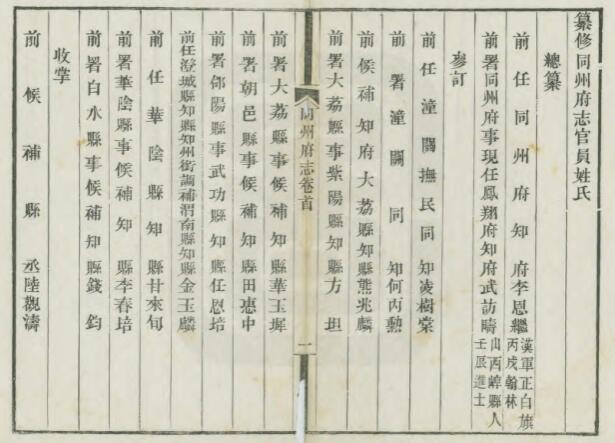 纂修同州府志官員姓氏
總纂
前任同州府知府李恩繼漢軍正白旗丙戌翰林
前署同州府事現任鳳翔府知府武訪疇山西崞縣人壬辰進士
參訂
前任潼關撫民同知凌樹棠
前署潼關同知何丙勳
前候補知府大荔縣知縣熊兆麟
前署大荔縣事紫陽縣知縣方坦
同州府志卷首
一
前署大荔縣事候補知縣華玉墀
前署朝邑縣事候補知縣田惠中
前署郃陽縣事武功縣知縣任恩培
前任澄城縣知縣知州銜調補渭南縣知縣金玉麟
前任華陰縣知縣甘來旬
前署華陰縣事候補知縣李春培
前署白水縣事候補知縣錢鈞
收掌
前候補縣丞陸觀濤